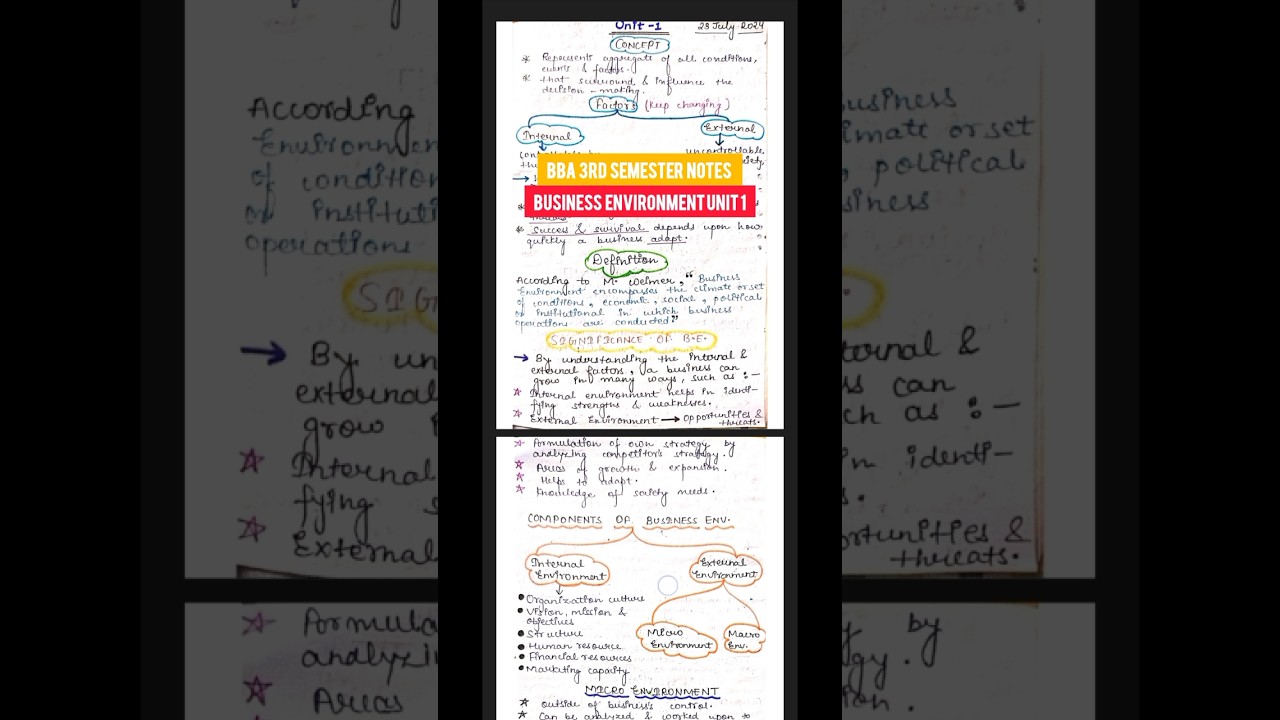 Unit-1
23 July 2024
CONCEPT
* Represents aggregate of all conditions,
events & factors.
* that surround & influence the
decision-making.
Factors (keep changing)
Internal
External
uncontrollable,
BBA 3RD SEMESTER NOTES
BUSINESS ENVIRONMENT UNIT 1
* Success & survival depends upon how
quickly a business adapt.
Definition
According to M. Weimer, " Business
Environment encompasses the climate or set
of conditions, economic, social, political
or institutional in which business
operations are conducted"
SIGNIFICANCE OF B.E.
→ By understanding the internal &
external factors, a business can
grow in many ways, such as :-
* Internal environment helps in identi-
fying strengths & weaknesses.
* External Environment → opportunities &
threats.
* Formulation of own strategy by
analyzing competitor's strategy.
* Areas of growth & expansion.
* Helps to adapt.
* Knowledge of society needs.
COMPONENTS OF BUSINESS ENV.
Internal
Environment
External
Environment
• Organization culture
• Vision, mission &
objectives
• Structure
• Human resource
• Financial resources
• Marketing capacity
Micro
Environment
Macro
Env.
MICRO ENVIRONMENT
* outside of business's control.
* Can be analyzed & worked upon to